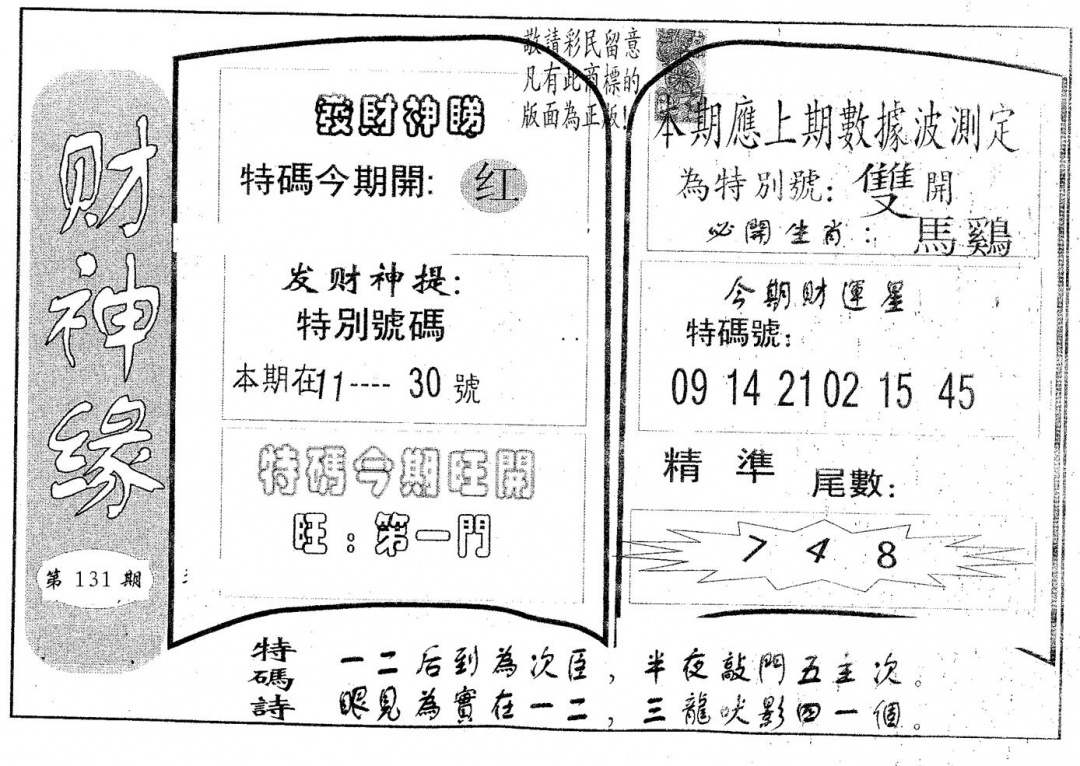 财神缘
第 131 期
敬請彩民留意
凡有此商標的
版面為正版!
發財神睇
特碼今期開: 红
发财神提:
特別號碼
本期在11----30號
特碼今期旺開
旺:第一門
本期應上期數據波測定
為特別號:雙開
必開生肖:馬鷄
今期財運星
特碼號:
09 14 21 02 15 45
精準 尾數:
7 4 8
特碼詩
一二后到為次臣,半夜敲門五主次。
眼見為實在一二,三龍吠影四一個。